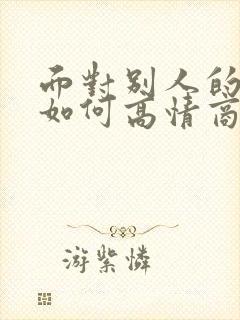 而對别人的
如何高情商
游紫憐